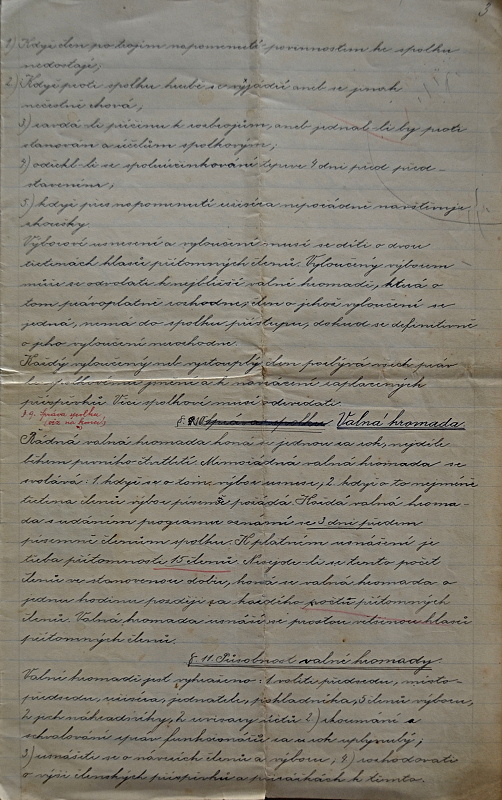 3
1) Když člen po trojím napomenutí povinnostem ke spolku
nedostojí;
2) Když proti spolku hrubě se vyjádří aneb se jinak
nečestně chová;
3) zavdá-li příčinu k rozbrojům, aneb jednal-li by proti
stanovám a účelům spolkovým;
4) odřekl-li se spoluúčinkování teprve 4 dni před před-
stavením;
5) když přes napomenutí režiséra nepořádně navštěvuje
zkoušky.
Výborové usnesení a vyloučení musí se díti o dvou
třetinách hlasů přítomných členů. Vyloučený výborem
může se odvolati k nejbližší valné hromadě, která o
tom právoplatně rozhodne; člen o jehož vyloučení se
jedná, nemá do spolku přístupu, dokud se definitivně
o jeho vyloučení nerozhodne.
Každý vyloučený neb vystouplý člen pozbývá všech práv
ke spolkovému jmění a k navrácení zaplacených
příspěvků. Věci spolkové musí odevzdati.
§ 9. Správa spolku
(viz na konci)
§. 10. Správa spolku Valná hromada.
Řádná valná hromada koná se jednou za rok, nejdéle
během prvního čtvrtletí. Mimořádná valná hromada se
svolává: 1. když se o tom výbor usnese, 2. když o to nejméně
třetina členů výbor písemně požádá. Každá valná hroma-
da s udáním programu oznámí se 3 dni předem
písemně členům spolku. K platnému usnášení je
třeba přítomnosti 15 členů. Nesejde-li se tento počet
členů ve stanovenou dobu, koná se valná hromada o
jednu hodinu později za každého počtu přítomných
členů. Valná hromada usnáší se prostou většinou hlasů
přítomných členů.
§. 11. Působnost valné hromady.
Valné hromadě jest vyhrazeno: 1. volit předsedu, místo-
předsedu, režiséra, jednatele, pokladníka, 5 členů výboru,
2 jich náhradníky, k revizory účtů 2) zkoumání a
schvalování zpráv funkcionářů za rok uplynulý;
3) usnášeti se o návrzích členů a výboru; 4) rozhodovati
o výši členských příspěvků a přirážkách k těmto.